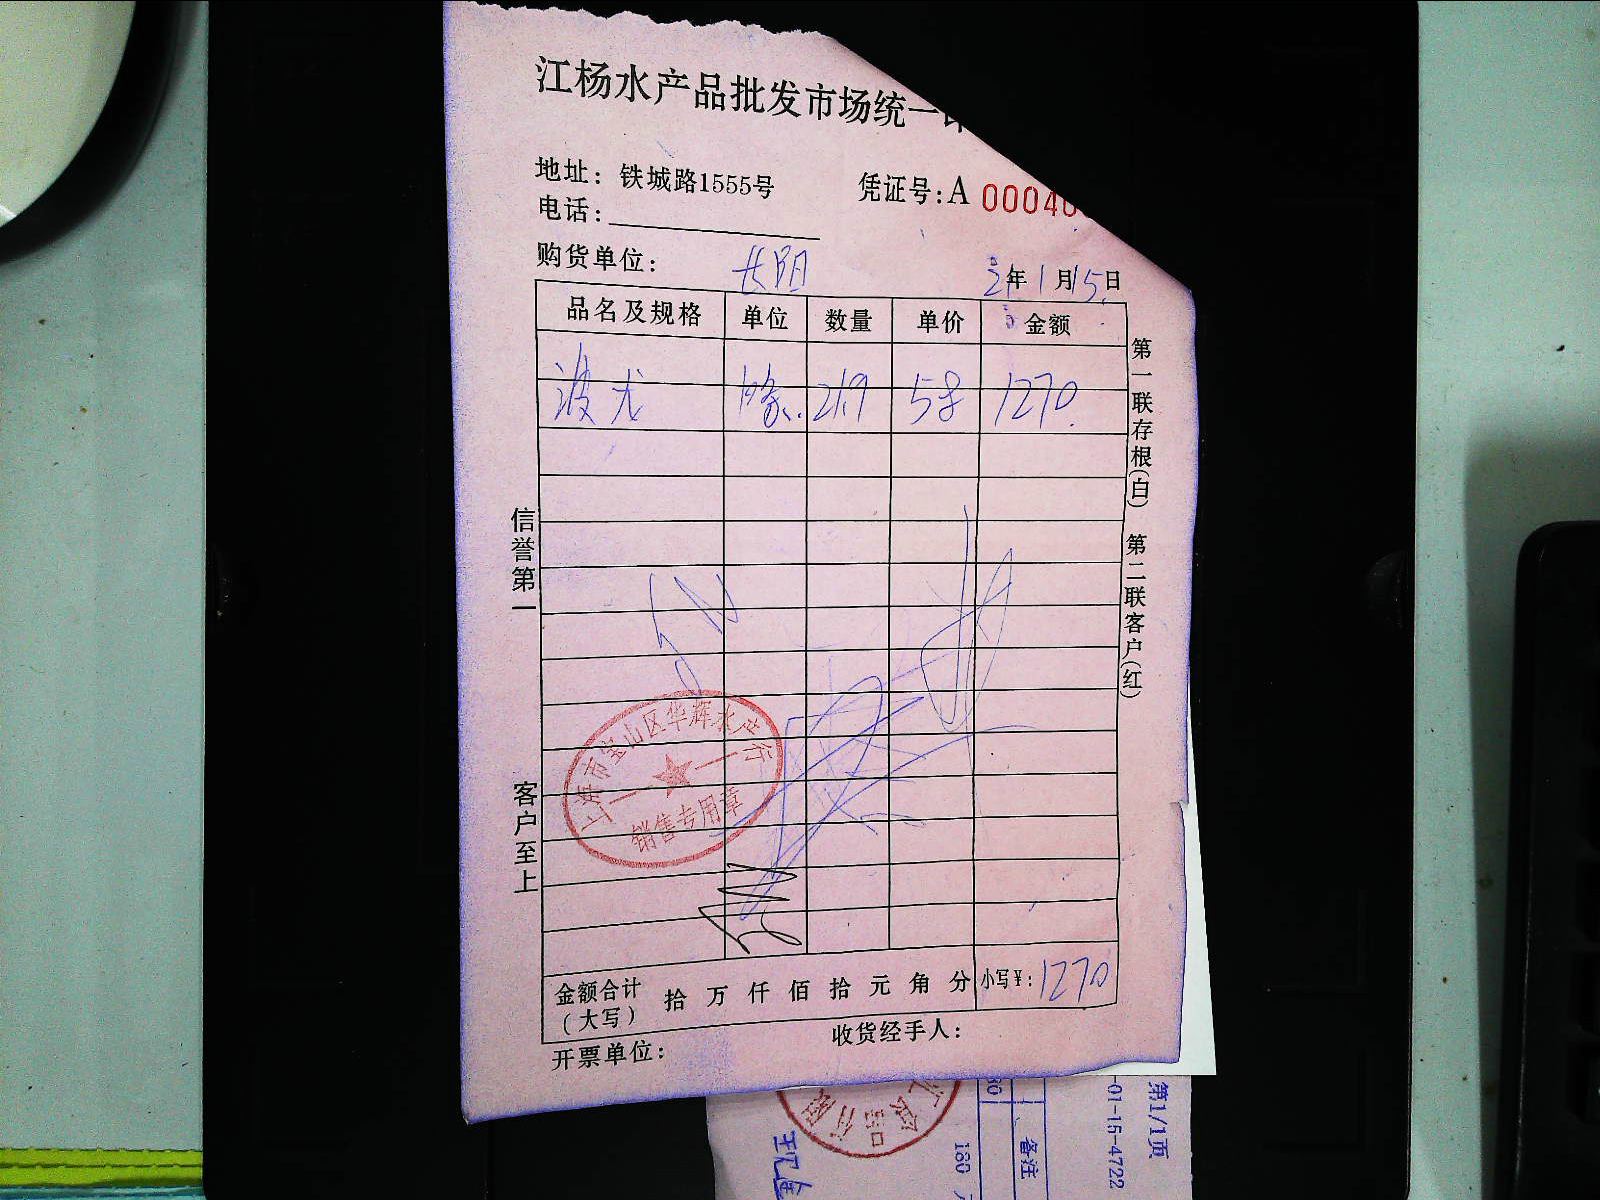 江杨水产品批发市场统一
地址：铁城路1555号
凭证号:A 00040
电话：
购货单位： 长阳
年1月15日
品名及规格 单位 数量 单价 金额
波龙 21.9 58 1270
信誉第一
客户至上
第一联存根(白) 第二联客户(红)
上海市宝山区华辉水产行
销售专用章
金额合计(大写) 拾 万 仟 佰 拾 元 角 分 小写¥: 1270
开票单位：
收货经手人：
第1/1页
-01-15-4722
备注
180